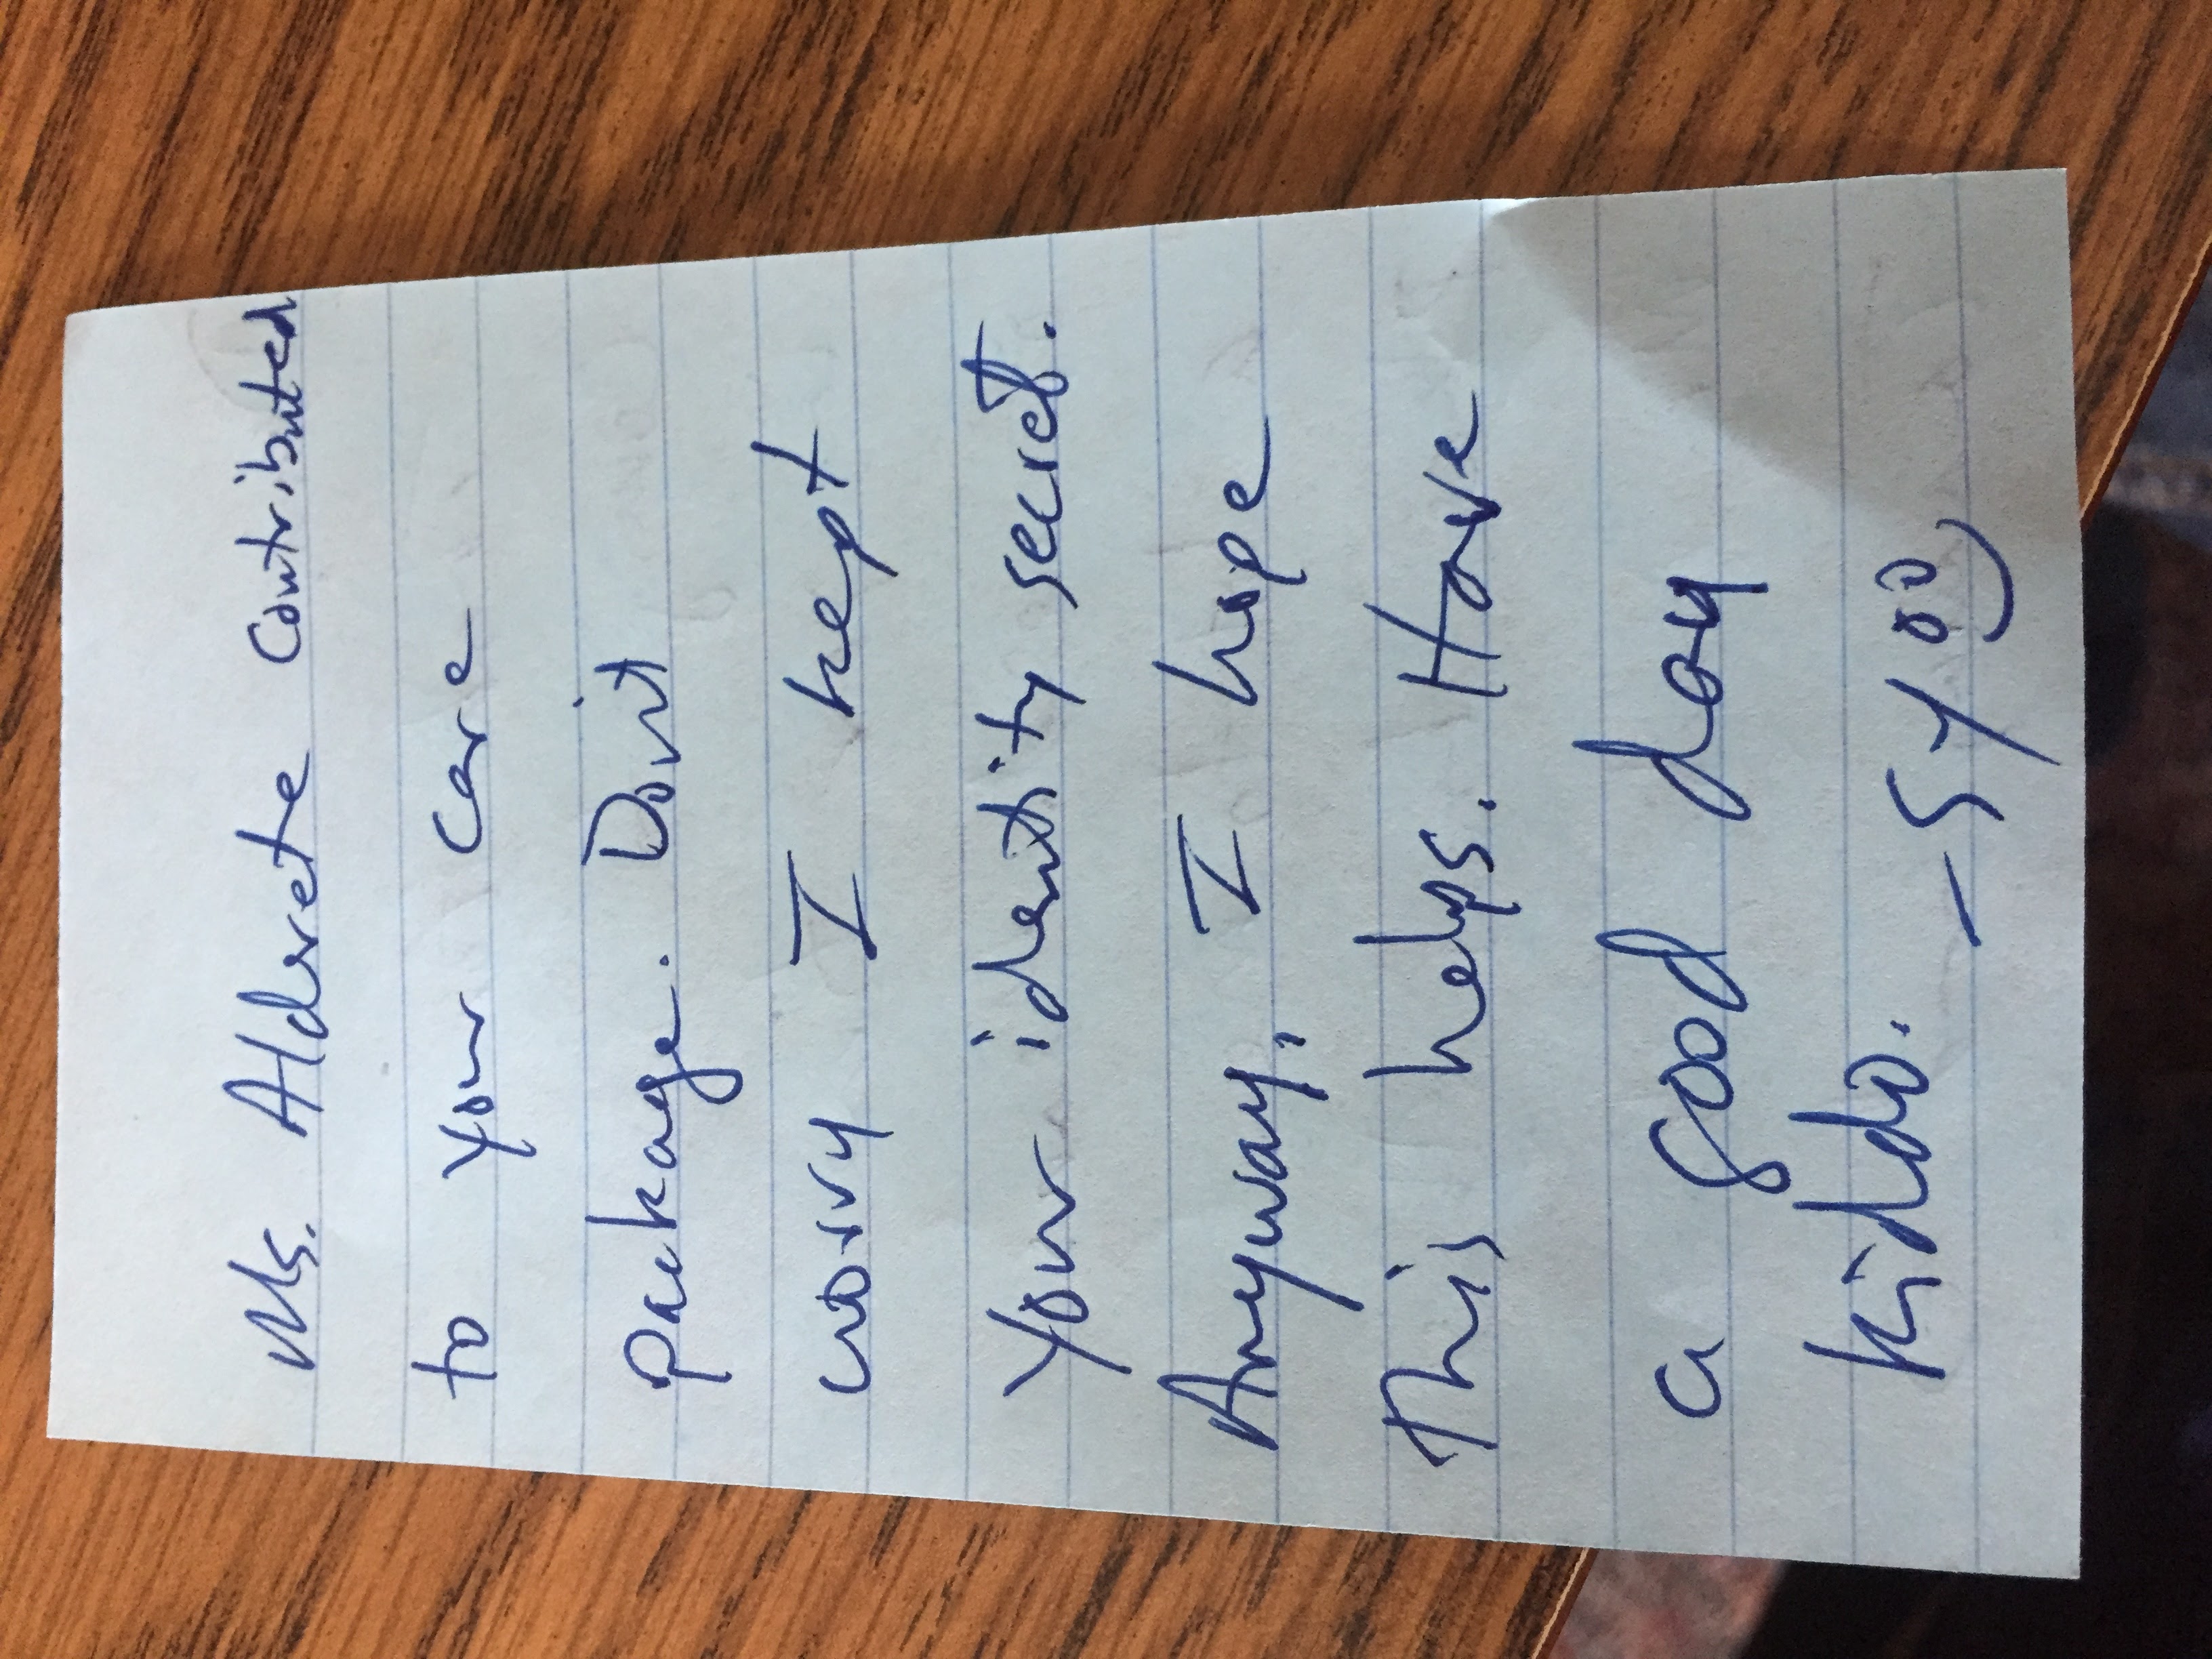 Ms. Alderete Contributed
to your care
package. Don't
worry I kept
your identity secret.
Anyway, I hope
this helps. Have
a good day
kiddo. - Sy